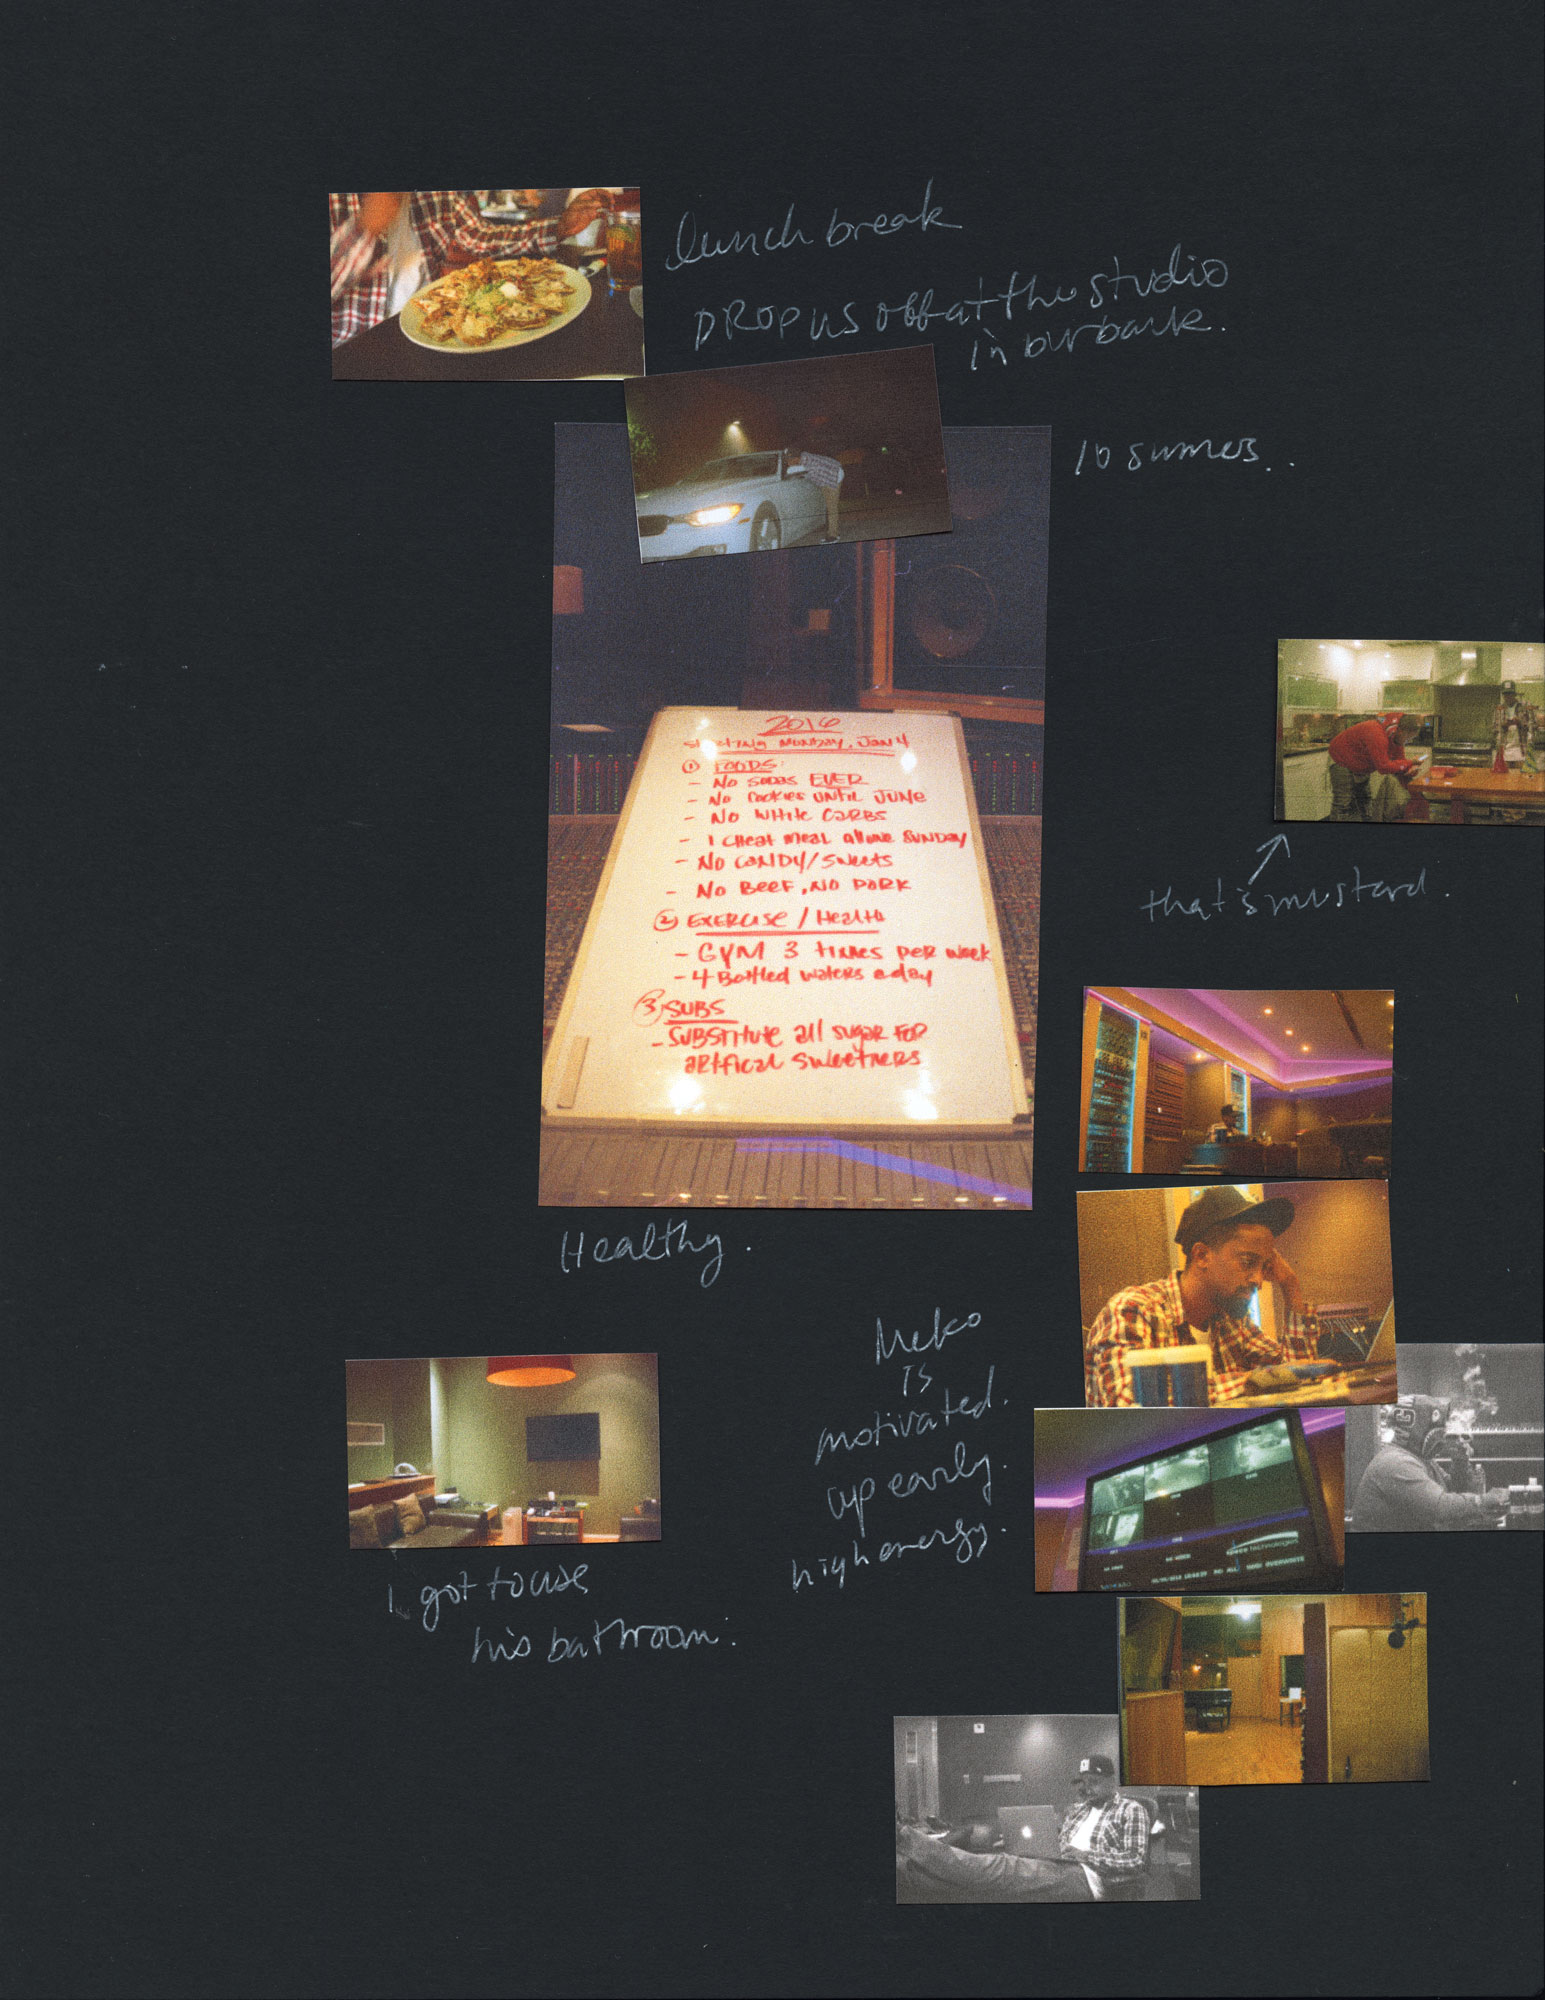 lunch break
DROP us off at the studio
in burbank.
10 summers..
2016
Starting Monday, Jan 4
① FOODS:
- No sodas EVER
- No cookies until JUNE
- No White carbs
- 1 cheat meal allowed SUNDAY
- No CANDY/sweets
- No BEEF, NO PORK
② EXERCISE / Health
- GYM 3 times per week
- 4 Bottled waters a day
③ SUBS
- SUBSTITUTE all sugar for
artfical sweetners
that's mustard.
Healthy.
Meko
is
motivated.
up early.
high energy.
I got to use
his bathroom.